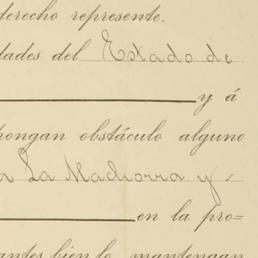 derecho represente.
dades del Estado de
y á
pongan obstáculo alguno
La Machorra y
en la pro=
antes bien lo mantengan